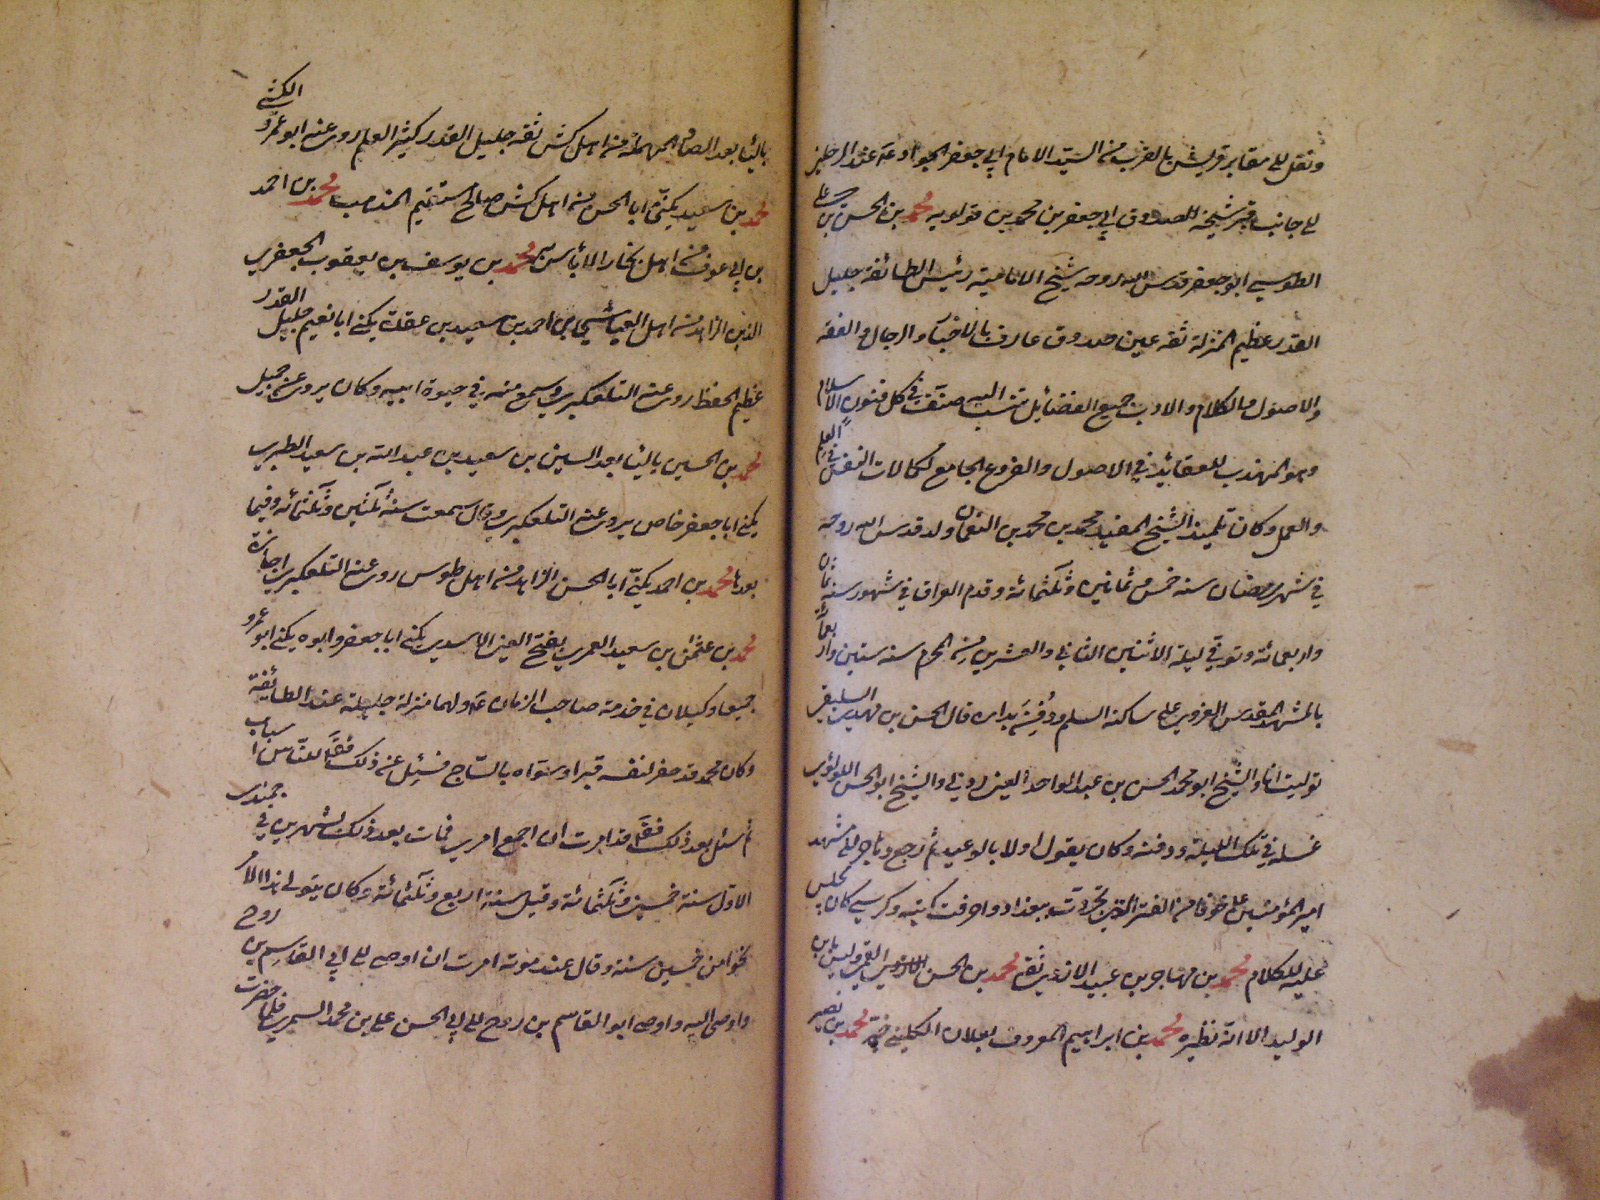 ونقل الى مقابر قريش بالقرب من السيد الامام ابي جعفر الجواد ع عند الرجلين
الى جانب قبر شيخه الصدوق ابي جعفر بن محمد بن قولويه محمد بن الحسن بن علي
الطوسي ابو جعفر قدس الله روحه شيخ الامامية رئيس الطائفة جليل
القدر عظيم المنزلة ثقة عين صدوق عارف بالاخبار والرجال والفقه
والاصول والكلام والادب جميع الفضائل تنسب اليه صنف في كل فنون الاسلام
وهو المهذب للعقايد في الاصول والفروع الجامع لكمالات النفس في العلم
والعمل وكان تلميذ الشيخ المفيد محمد بن محمد بن النعمان ولد قدس الله روحه
في شهر رمضان سنه خمس وثمانين وثلثمائة وقدم العراق في شهور سنة ثمان
واربعمائة وتوفي ليلة الاثنين الثاني والعشرين من المحرم سنه ستين واربعمائة
بالمشهد المقدس الغروي على ساكنه السلم ودفن بداره قال الحسن بن مهدي السليقي
توليت انا والشيخ ابو محمد الحسن بن عبد الواحد العين زربي والشيخ ابو الحسن اللؤلؤي
غسله في تلك الليلة ودفنه وكان يقول اولا بالوعيد ثم رجع وهاجر الى مشهد
امير المؤمنين ع خوفا من الفتن التي تجددت ببغداد واحرقت كتبه وكرسي كان يجلس
عليه للكلام محمد بن مهاجر بن عبيد الازدي ثقه محمد بن الحسن القمي وليس بابن
الوليد الا انه نظيره محمد بن ابراهيم المعروف بعلان الكليني خير محمد بن نصير
بالياء بعد الصاد المهملة من اهل كش ثقه جليل القدر كثير العلم روى عنه ابو عمرو الكشي
محمد بن سعيد يكنى ابا الحسن من اهل كش صالح مستقيم المذهب محمد بن احمد
بن ابي عوف من اهل بخارا لا بأس به محمد بن يوسف بن يعقوب الجعفري
الدين الزاهد من اهل العياشي احمد بن سعيد بن عقدة يكنى ابا نعيم جليل القدر
عظيم الحفظ روى عنه التلعكبري وسمع منه في حيوة ابيه وكان يروى عن حميد
محمد بن الحسين بالياء بعد السين بن سعيد بن عبد الله بن سعيد الطبري
يكنى ابا جعفر خاص يروى عنه التلعكبري وقال سمعت سنة ثلثين وثلثمائه وفيما
بعدها محمد بن احمد يكنى ابا الحسن الزاهد من اهل طوس روى عنه التلعكبري اجازة
محمد بن عثمن بن سعيد العمري بفتح العين الاسدي يكنى ابا جعفر وابوه يكنى ابو عمرو
جميعا وكيلان في خدمة صاحب الزمان ع ولهما منزلة جليلة عند الطائفة
وكان محمد قد حفر لنفسه قبرا وسواه بالساج فسئل عن ذلك فقال للناس اسباب
ثم سئل بعد ذلك فقال قد امرت ان اجمع امري فمات بعد ذلك بشهرين في جميدى
الاول سنة خمسين وثلثمائة وقيل سنة اربع وثلثمائة وكان يتولى هذا الامر
نحوا من خمسين سنة وقال عند موته امرت ان اوصى الى ابي القاسم بن روح
واوصى اليه واوصى ابو القاسم بن روح الى ابي الحسن على بن محمد السمري فلما حضرت